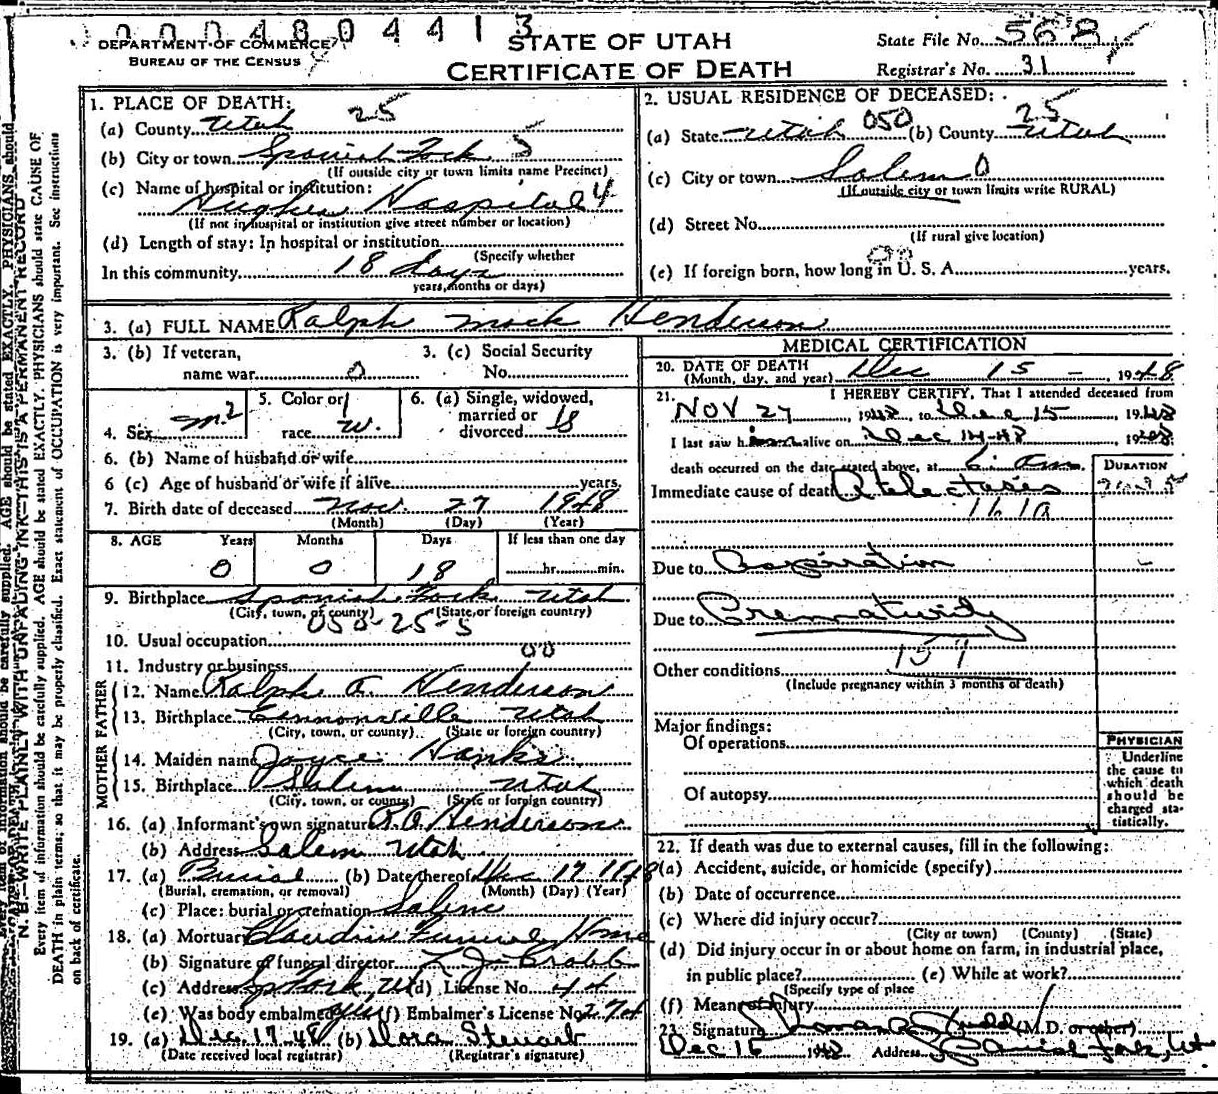 0004804413
DEPARTMENT OF COMMERCE
BUREAU OF THE CENSUS
STATE OF UTAH
CERTIFICATE OF DEATH
State File No. 568
Registrar's No. 31
1. PLACE OF DEATH: 25
(a) County Utah
(b) City or town Spanish Fork 5
(If outside city or town limits name Precinct)
(c) Name of hospital or institution:
Hughes Hospital 4
(If not in hospital or institution give street number or location)
(d) Length of stay: In hospital or institution
(Specify whether
In this community 18 days
years, months or days)
2. USUAL RESIDENCE OF DECEASED:
(a) State Utah 050 (b) County Utah 25
(c) City or town Salem 0
(If outside city or town limits write RURAL)
(d) Street No.
(If rural give location)
(e) If foreign born, how long in U. S. A. years.
3. (a) FULL NAME Ralph Mock Henderson
3. (b) If veteran,
name war 0
3. (c) Social Security
No.
4. Sex m 2
5. Color or
race w. 1
6. (a) Single, widowed,
married or
divorced S
6. (b) Name of husband or wife
6 (c) Age of husband or wife if alive years
7. Birth date of deceased Nov. 27 1948
(Month) (Day) (Year)
8. AGE Years Months Days If less than one day
0 0 18 hr. min.
9. Birthplace Spanish Fork Utah
(City, town, or county) (State or foreign country)
050-25-5
10. Usual occupation
00
11. Industry or business
FATHER
12. Name Ralph A. Henderson
13. Birthplace Cannonville Utah
(City, town, or county) (State or foreign country)
MOTHER
14. Maiden name Joyce Hanks
15. Birthplace Salem Utah
(City, town, or county) (State or foreign country)
16. (a) Informant's own signature R. A. Henderson
(b) Address Salem Utah
17. (a) Burial (b) Date thereof Dec 17 1948
(Burial, cremation, or removal) (Month) (Day) (Year)
(c) Place: burial or cremation Salem
18. (a) Mortuary Claudin Funeral Home
(b) Signature of funeral director
(c) Address Sp Fork, U (d) License No. 44
(e) Was body embalmed yes (f) Embalmer's License No. 274
19. (a) Dec. 17-48 (b) Dora Stewart
(Date received local registrar) (Registrar's signature)
MEDICAL CERTIFICATION
20. DATE OF DEATH
(Month, day, and year) Dec 15 - 1948
21. I HEREBY CERTIFY, That I attended deceased from
Nov 27, 1948, to Dec 15, 1948
I last saw him alive on Dec 14-48, 1948
death occurred on the date stated above, at 6: am.
DURATION
Immediate cause of death Atelectasis
161a
Due to Aspiration
Due to Prematurity
159
Other conditions
(Include pregnancy within 3 months of death)
Major findings:
Of operations
Of autopsy
PHYSICIAN
Underline
the cause to
which death
should be
charged sta-
tistically.
22. If death was due to external causes, fill in the following:
(a) Accident, suicide, or homicide (specify)
(b) Date of occurrence
(c) Where did injury occur?
(City or town) (County) (State)
(d) Did injury occur in or about home on farm, in industrial place,
in public place? (e) While at work?
(Specify type of place
(f) Means of injury
23. Signature (M.D. or other)
Dec 16 1948 Address Spanish Fork, Ut
N. B.—WRITE PLAINLY, WITH UNFADING INK—THIS IS A PERMANENT RECORD
Every item of information should be carefully supplied. AGE should be stated EXACTLY. PHYSICIANS should state CAUSE OF
DEATH in plain terms, so that it may be properly classified. Exact statement of OCCUPATION is very important. See instructions
on back of certificate.